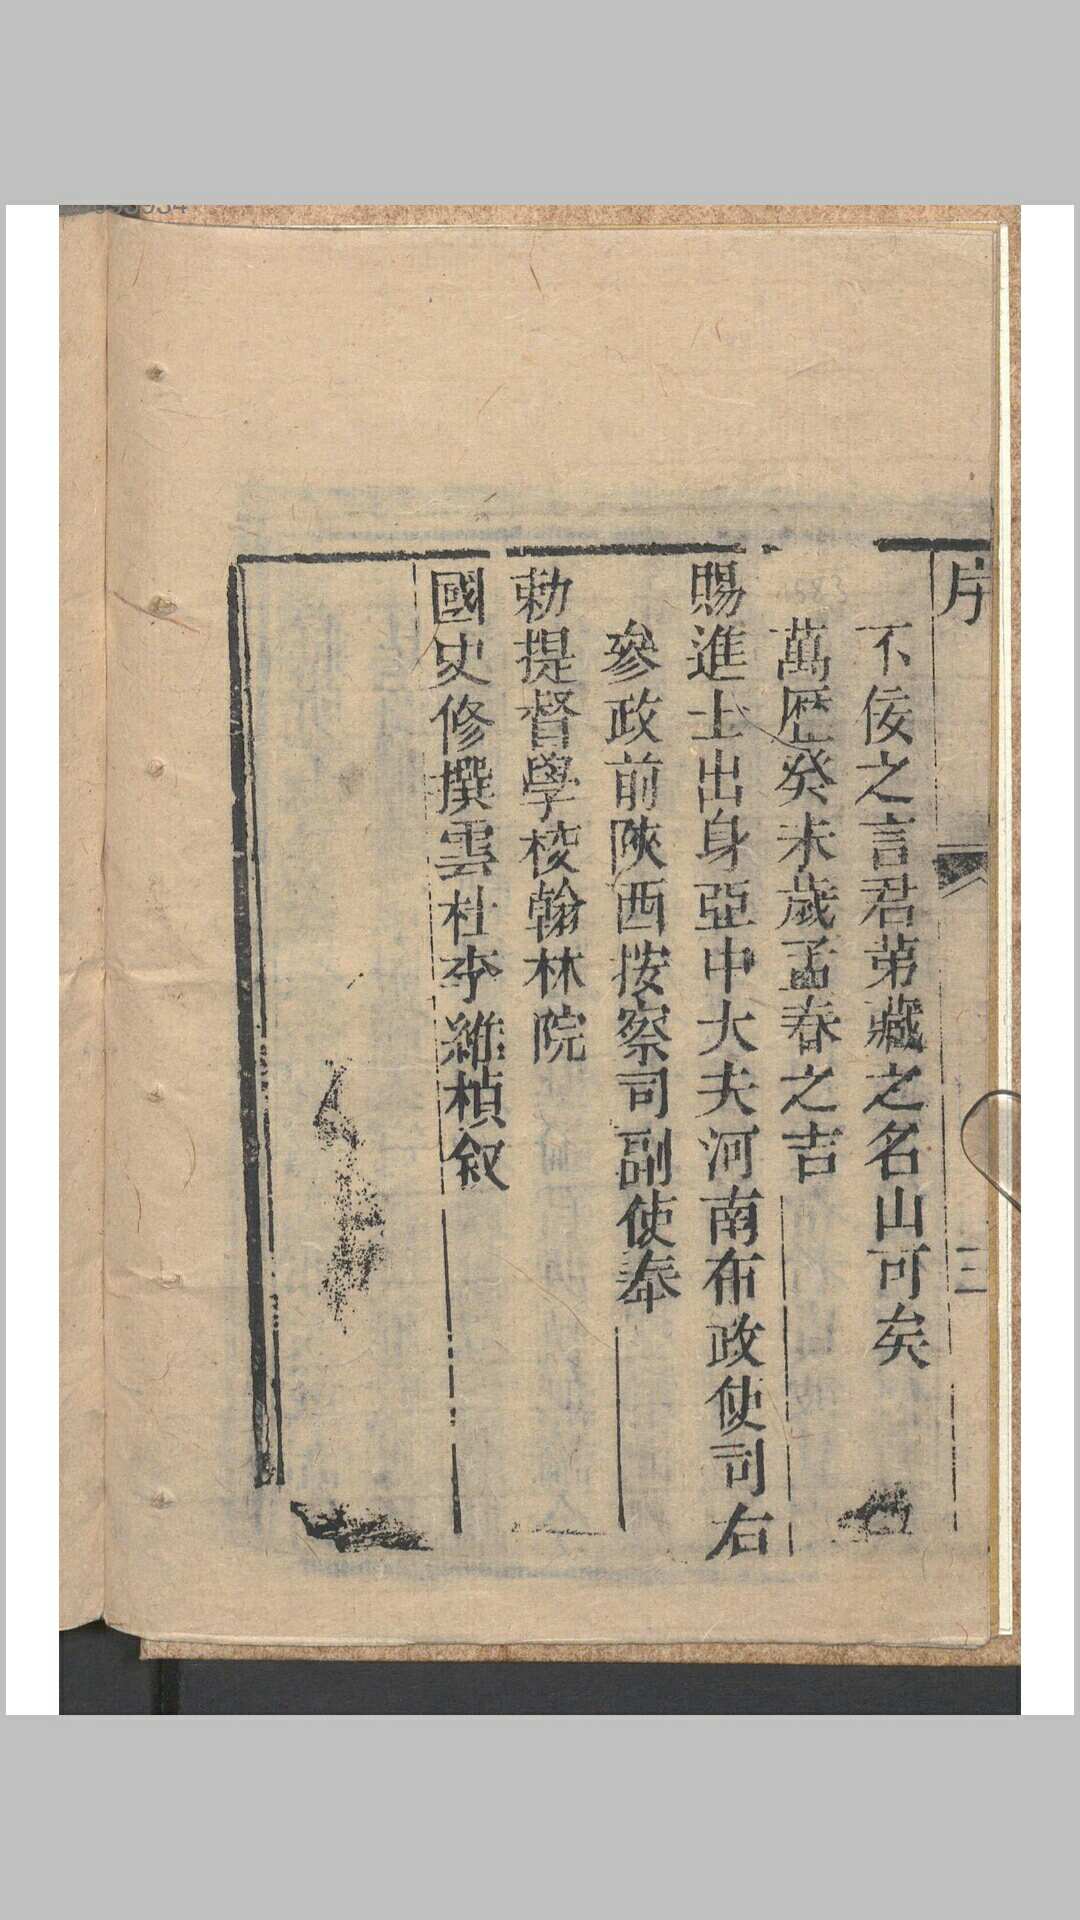 序
三
不佞之言君第藏之名山可矣
萬歴癸未歲孟春之吉
賜進士出身亞中大夫河南布政使司右
參政前陝西按察司副使奉
勅提督學校翰林院
國史修撰雲杜李維楨叙
1583